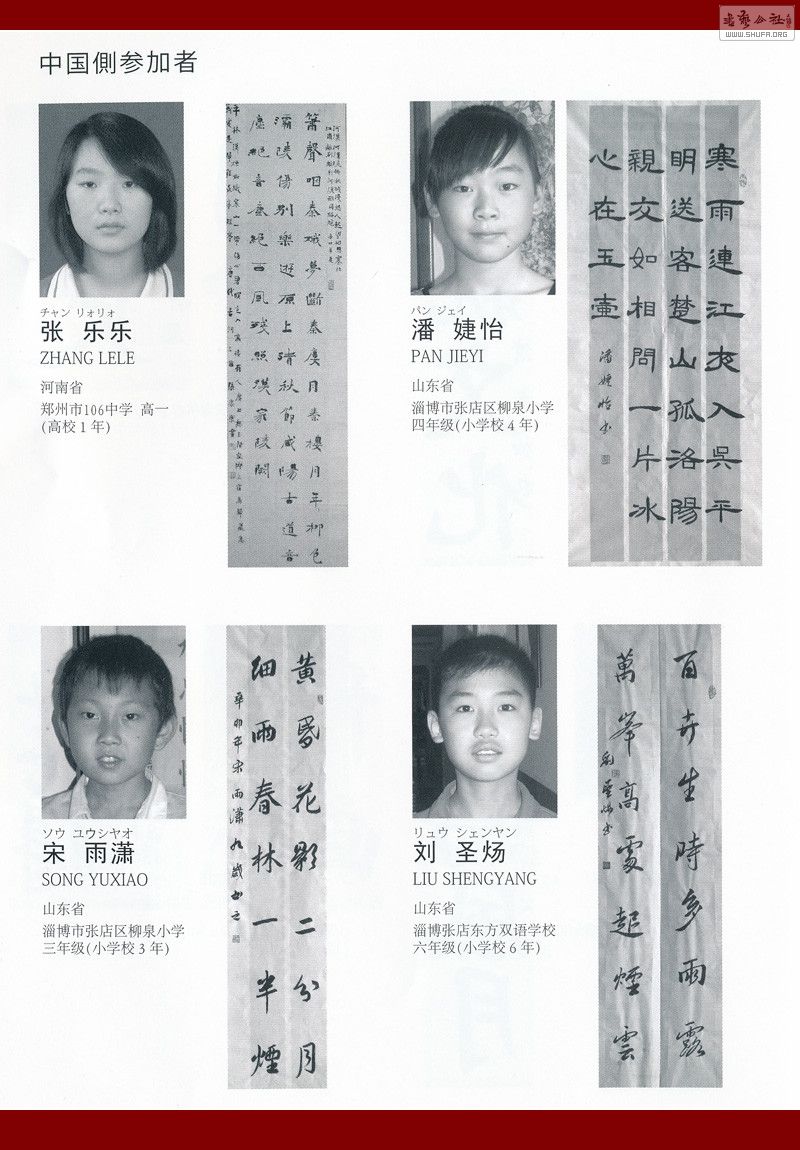 書藝公社
WWW.SHUFA.ORG
中国側参加者
チャン リォリォ
张 乐乐
ZHANG LELE
河南省
郑州市106中学 高一
(高校1年)
簫聲咽秦娥夢斷秦樓月秦樓月年柳色
灞陵傷別樂遊原上清秋節咸陽古道音
塵絕音塵絕西風殘照漢家陵闕
パン ジェイ
潘 婕怡
PAN JIEYI
山东省
淄博市张店区柳泉小学
四年级(小学校4年)
寒雨連江夜入吳平
明送客楚山孤洛陽
親友如相問一片冰
心在玉壺
潘婕怡书
ソウ ユウシヤオ
宋 雨潇
SONG YUXIAO
山东省
淄博市张店区柳泉小学
三年级(小学校3年)
黃昏花影二分月
細雨春林一半煙
辛卯年宋雨瀟九歲书之
リュウ シェンヤン
刘 圣炀
LIU SHENGYANG
山东省
淄博张店东方双语学校
六年级(小学校6年)
百卉生時多雨露
萬峯高處起煙雲
刘圣炀书